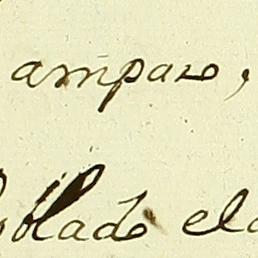 amparo,
oblado ela